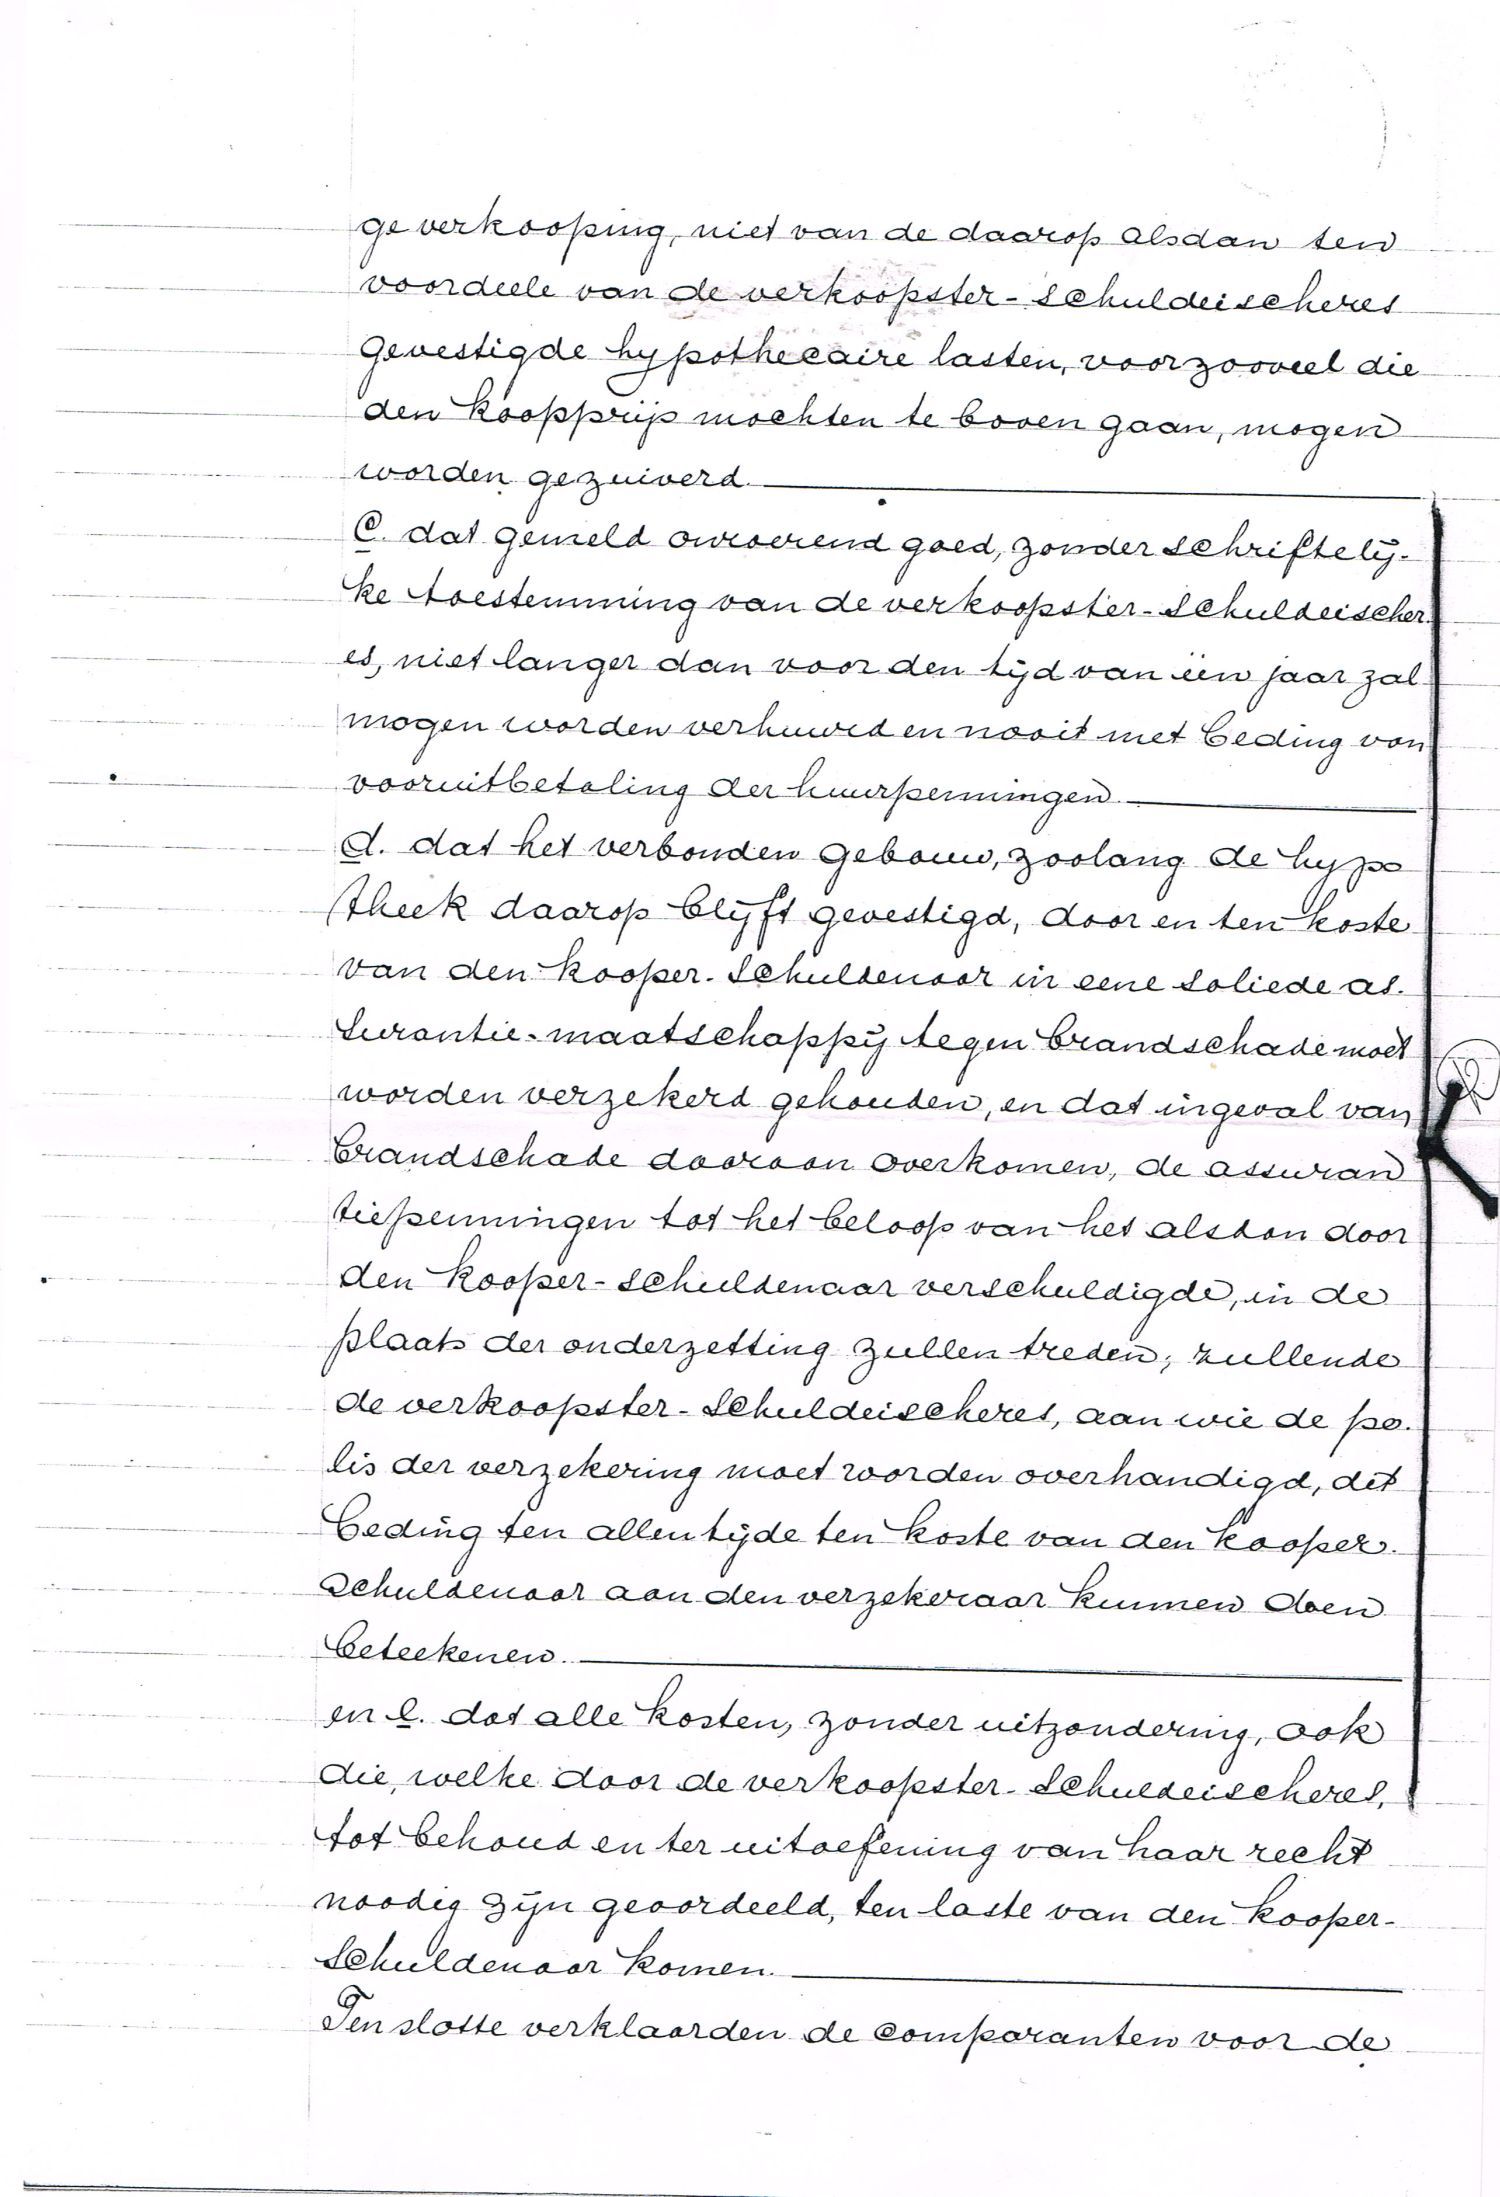 ge verkooping, niet van de daarop alsdan ten
voordeele van de verkoopster-schuldeischeres
gevestigde hypothecaire lasten, voorzooveel die
den koopprijs mochten te boven gaan, mogen
worden gezuiverd.
c. dat gemeld onroerend goed, zonder schriftelij-
ke toestemming van de verkoopster-schuldeischer-
es, niet langer dan voor den tijd van één jaar zal
mogen worden verhuurd en nooit met beding van
vooruitbetaling der huurpenningen.
d. dat het verbonden gebouw, zoolang de hypo
theek daarop blijft gevestigd, door en ten koste
van den kooper-schuldenaar in eene soliede as-
surantie-maatschappij tegen brandschade moet
worden verzekerd gehouden, en dat ingeval van
brandschade daaraan overkomen, de assuran
tiepenningen tot het beloop van het alsdan door
den kooper-schuldenaar verschuldigde, in de
plaats der onderzetting zullen treden; zullende
de verkoopster-schuldeischeres, aan wie de po-
lis der verzekering moet worden overhandigd, dit
beding ten allen tijde ten koste van den kooper-
schuldenaar aan den verzekeraar kunnen doen
beteekenen.
en e. dat alle kosten, zonder uitzondering, ook
die, welke door de verkoopster-schuldeischeres,
tot behoud en ter uitoefening van haar recht
noodig zijn geoordeeld, ten laste van den kooper-
schuldenaar komen.
Ten slotte verklaarden de comparanten voor de